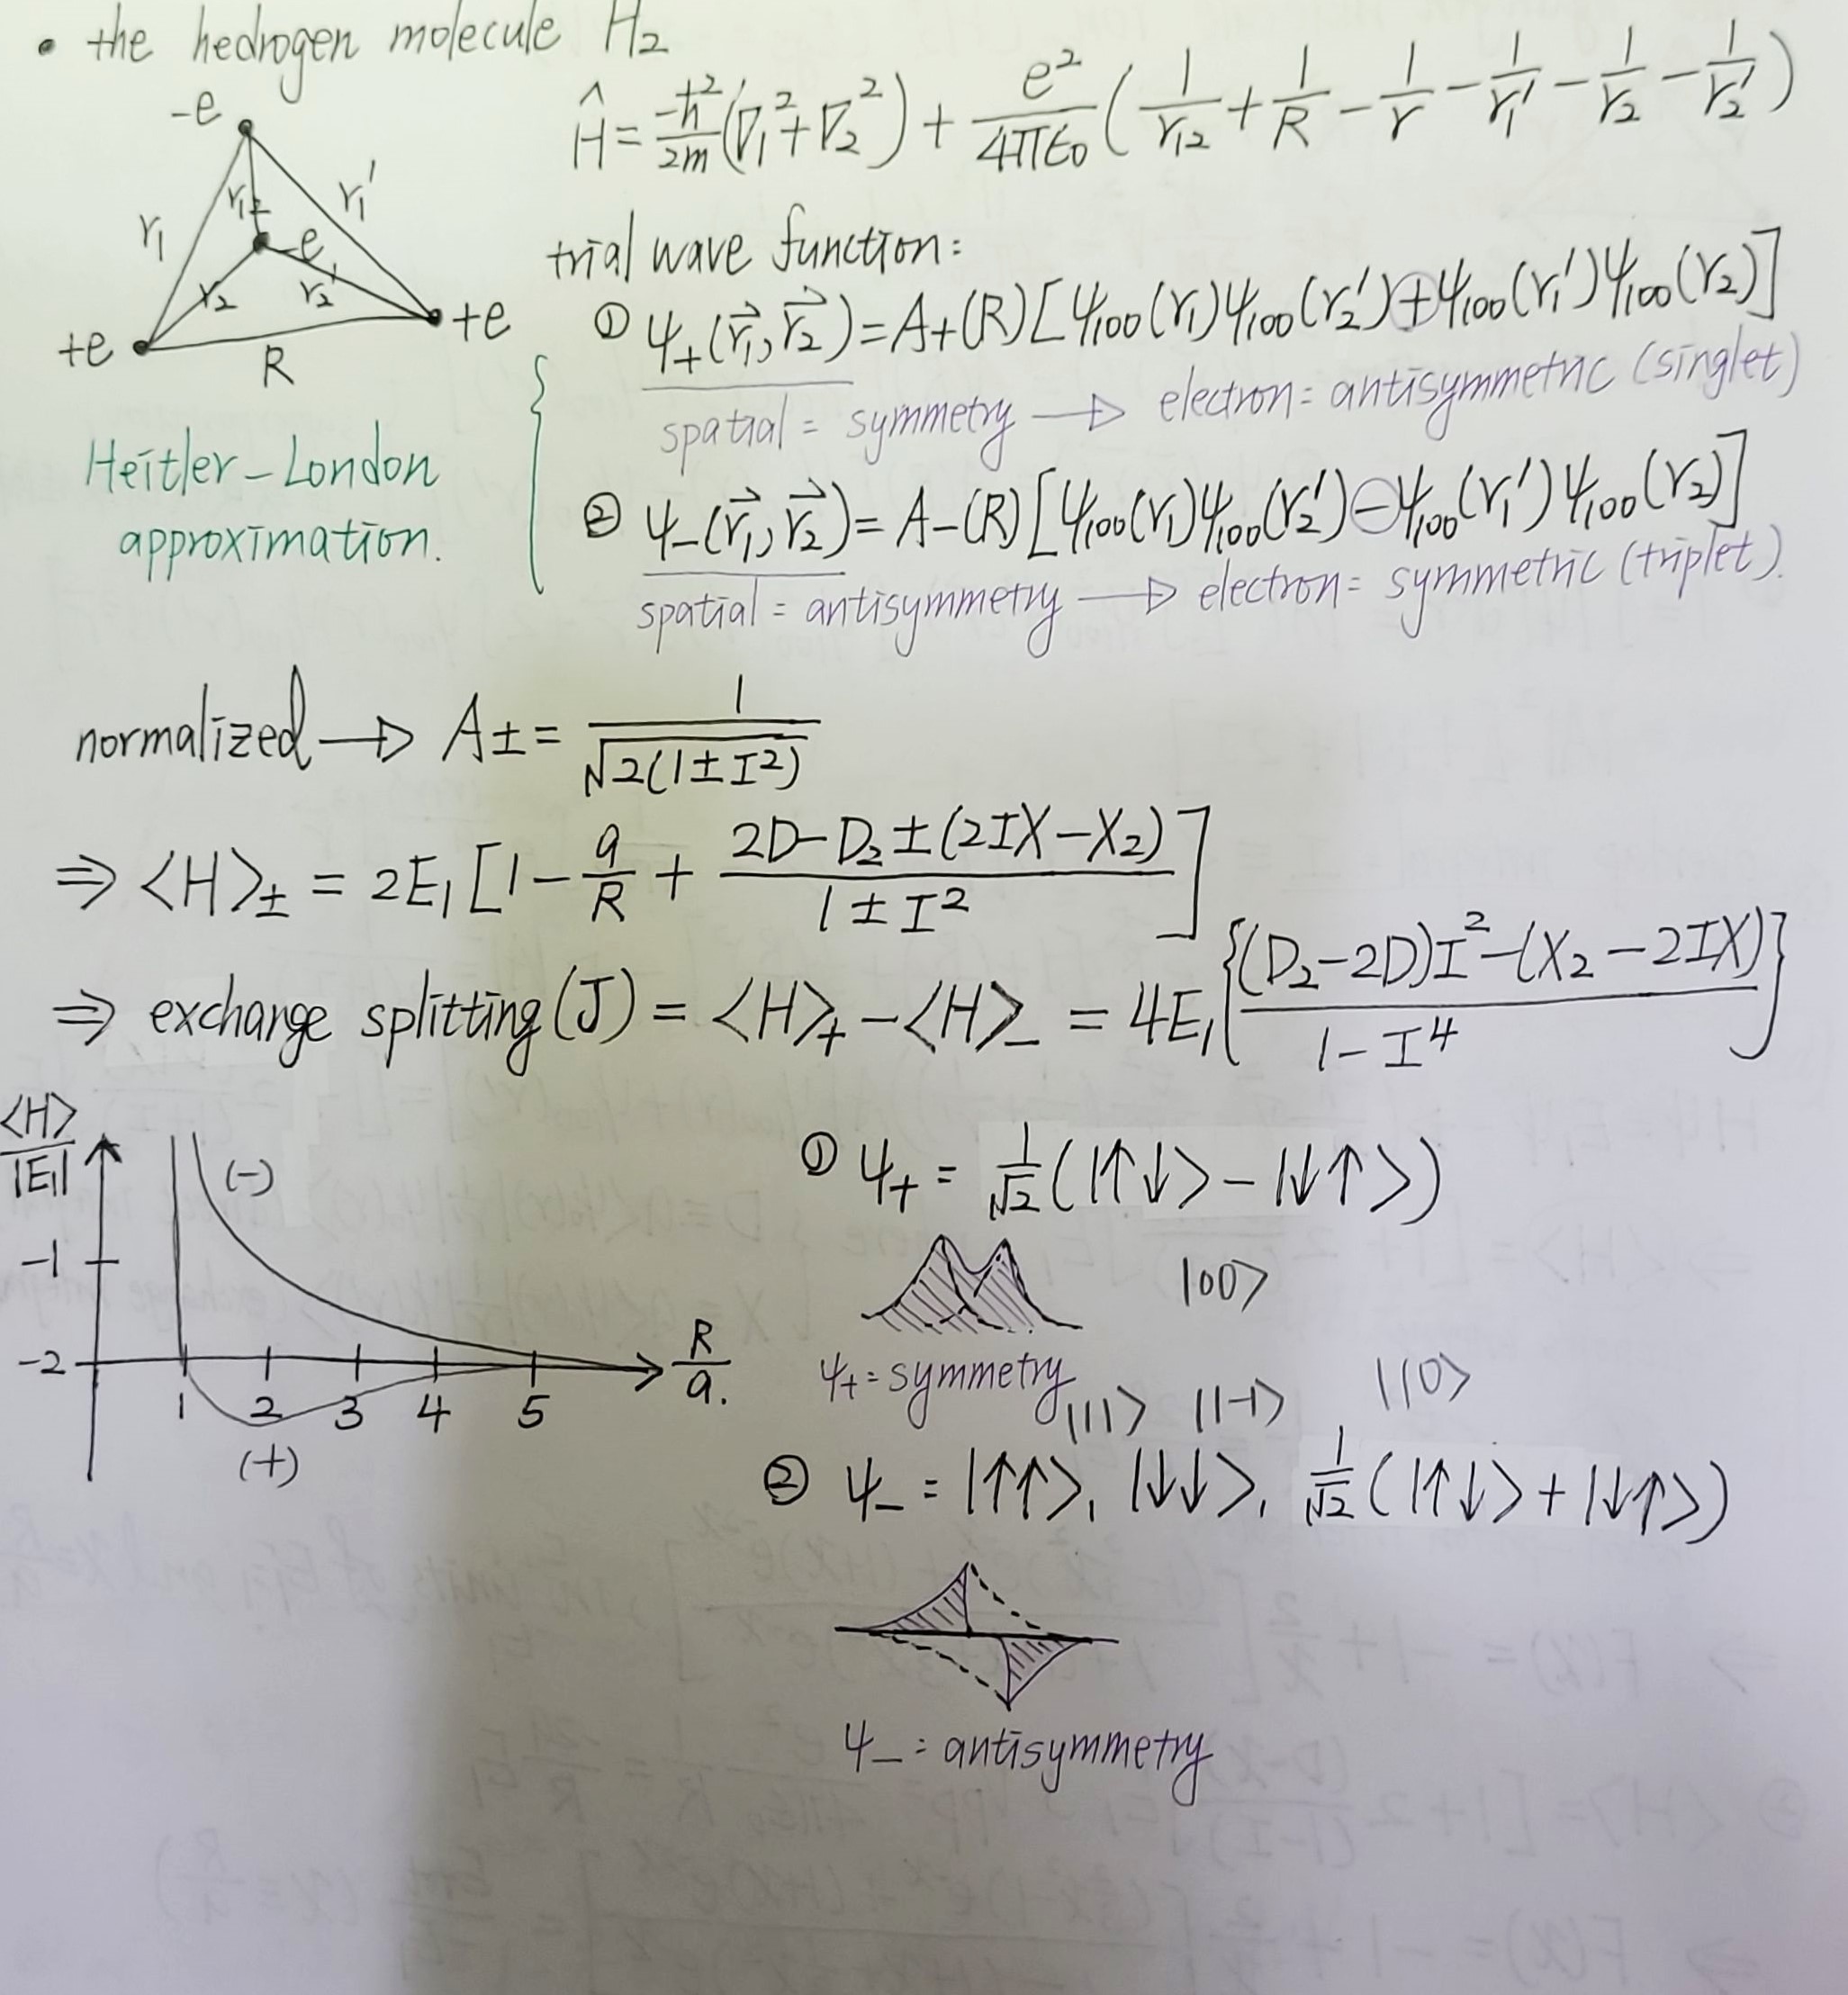 • the hedrogen molecule H₂
Ĥ = -ħ²/2m (∇₁² + ∇₂²) + e²/4πε₀ (1/r₁₂ + 1/R - 1/r - 1/r₁' - 1/r₂ - 1/r₂')
-e
r₁ r₁₂ r₁'
-e
r₂ r₂'
+e R +e
trial wave function:
① ψ₊(r⃗₁, r⃗₂) = A₊(R)[ψ₁₀₀(r₁)ψ₁₀₀(r₂') ⊕ ψ₁₀₀(r₁')ψ₁₀₀(r₂)]
spatial = symmetry → electron = antisymmetric (singlet)
Heitler-London
approximation.
② ψ₋(r⃗₁, r⃗₂) = A₋(R)[ψ₁₀₀(r₁)ψ₁₀₀(r₂') ⊖ ψ₁₀₀(r₁')ψ₁₀₀(r₂)]
spatial = antisymmetry → electron = symmetric (triplet).
normalized → A± = 1/√2(1±I²)
⇒ ⟨H⟩± = 2E₁[1 - a/R + 2D-D₂±(2IX-X₂)/1±I²]
⇒ exchange splitting (J) = ⟨H⟩₊ - ⟨H⟩₋ = 4E₁{(D₂-2D)I²-(X₂-2IX)/1-I⁴}
⟨H⟩/|E₁|
(-)
-1
-2
1 2 3 4 5
R/a.
(+)
① ψ₊ = 1/√2 (|↑↓⟩ - |↓↑⟩)
|00⟩
ψ₊ = symmetry
|11⟩ |1-1⟩ |10⟩
② ψ₋ = |↑↑⟩, |↓↓⟩, 1/√2 (|↑↓⟩ + |↓↑⟩)
ψ₋ = antisymmetry